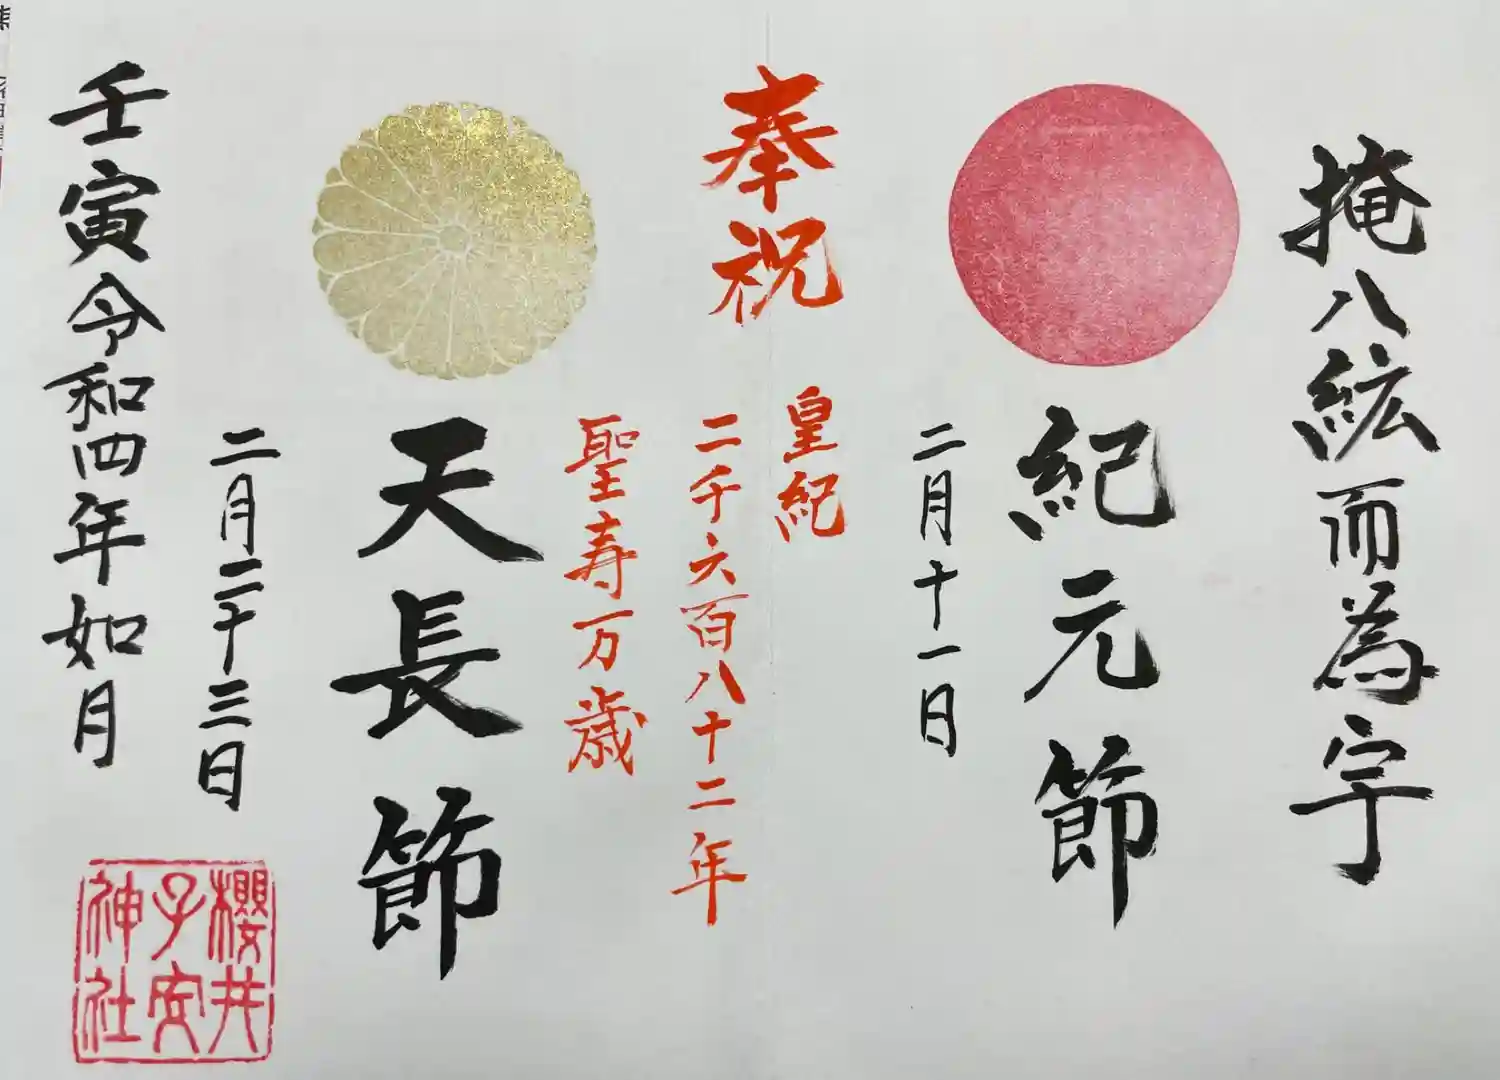 掩八紘而為宇
紀元節
二月十一日
奉祝
皇紀
二千六百八十二年
聖寿万歳
天長節
二月二十三日
壬寅令和四年如月
櫻井
子安
神社